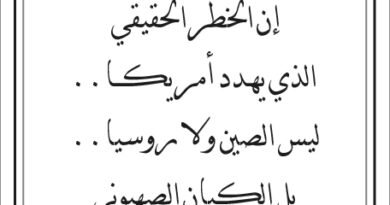 إن الخطر الحقيقي
الذي يهدد أمريكا . .
ليس الصين ولا روسيا . .
بل الكيان الصهيوني